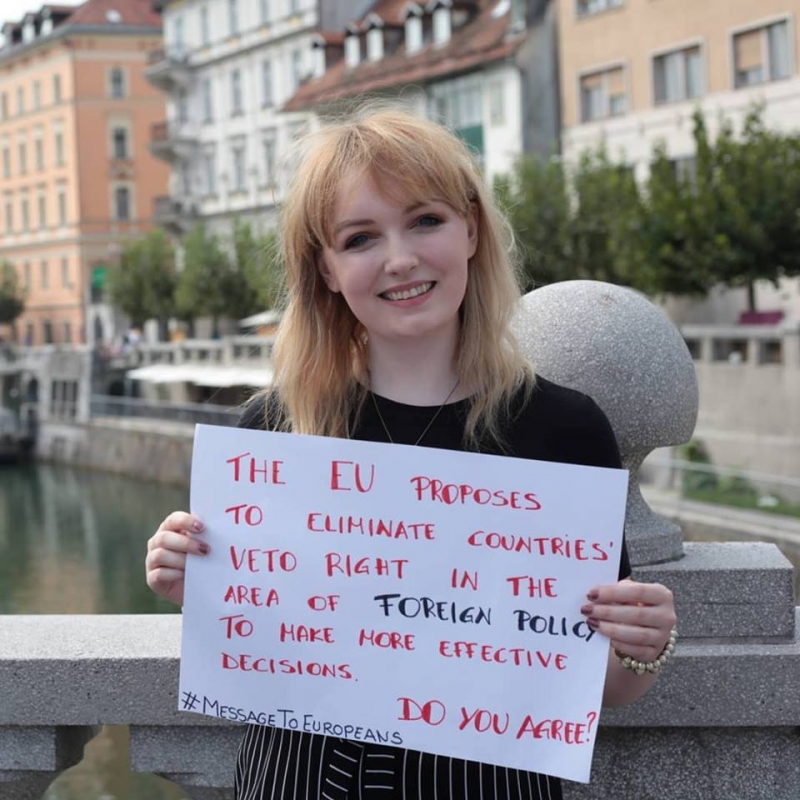 THE EU PROPOSES
TO ELIMINATE COUNTRIES'
VETO RIGHT IN THE
AREA OF FOREIGN POLICY
TO MAKE MORE EFFECTIVE
DECISIONS.
DO YOU AGREE?
#MESSAGETOEUROPEANS